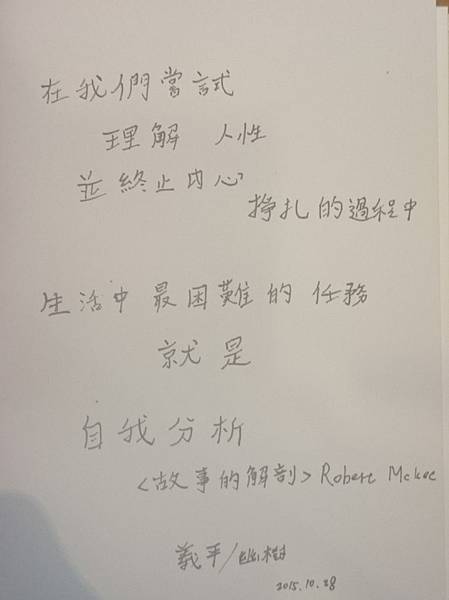 在我們嘗試
理解 人性
並終止內心
掙扎的過程中
生活中最困難的任務
就是
自我分析
<故事的解剖> Robert Mckee
義平/幽樹
2015.10.28